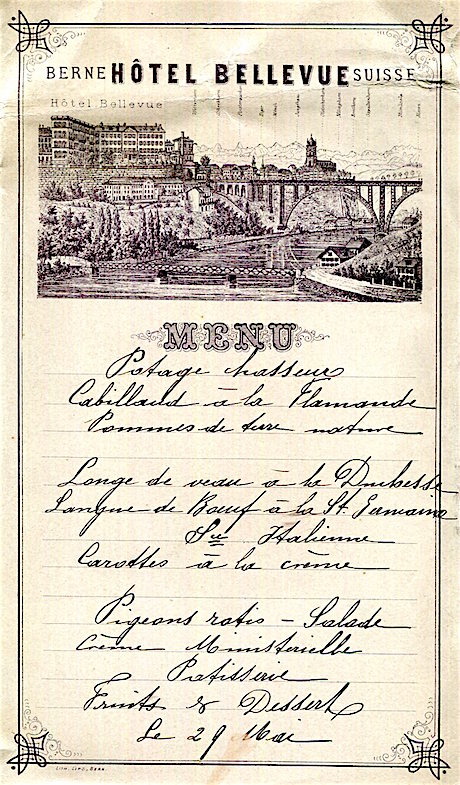 BERNE HÔTEL BELLEVUE SUISSE
Hôtel Bellevue
MENU
Potage chasseur
Cabillaud à la Flamande
Pommes de terre nature
Longe de veau à la Duchesse
Langue de Bœuf à la St. Germain
Sce Italienne
Carottes à la crème
Pigeons rotis - Salade
Crème Ministerielle
Patisserie
Fruits & Dessert
Le 29 Mai